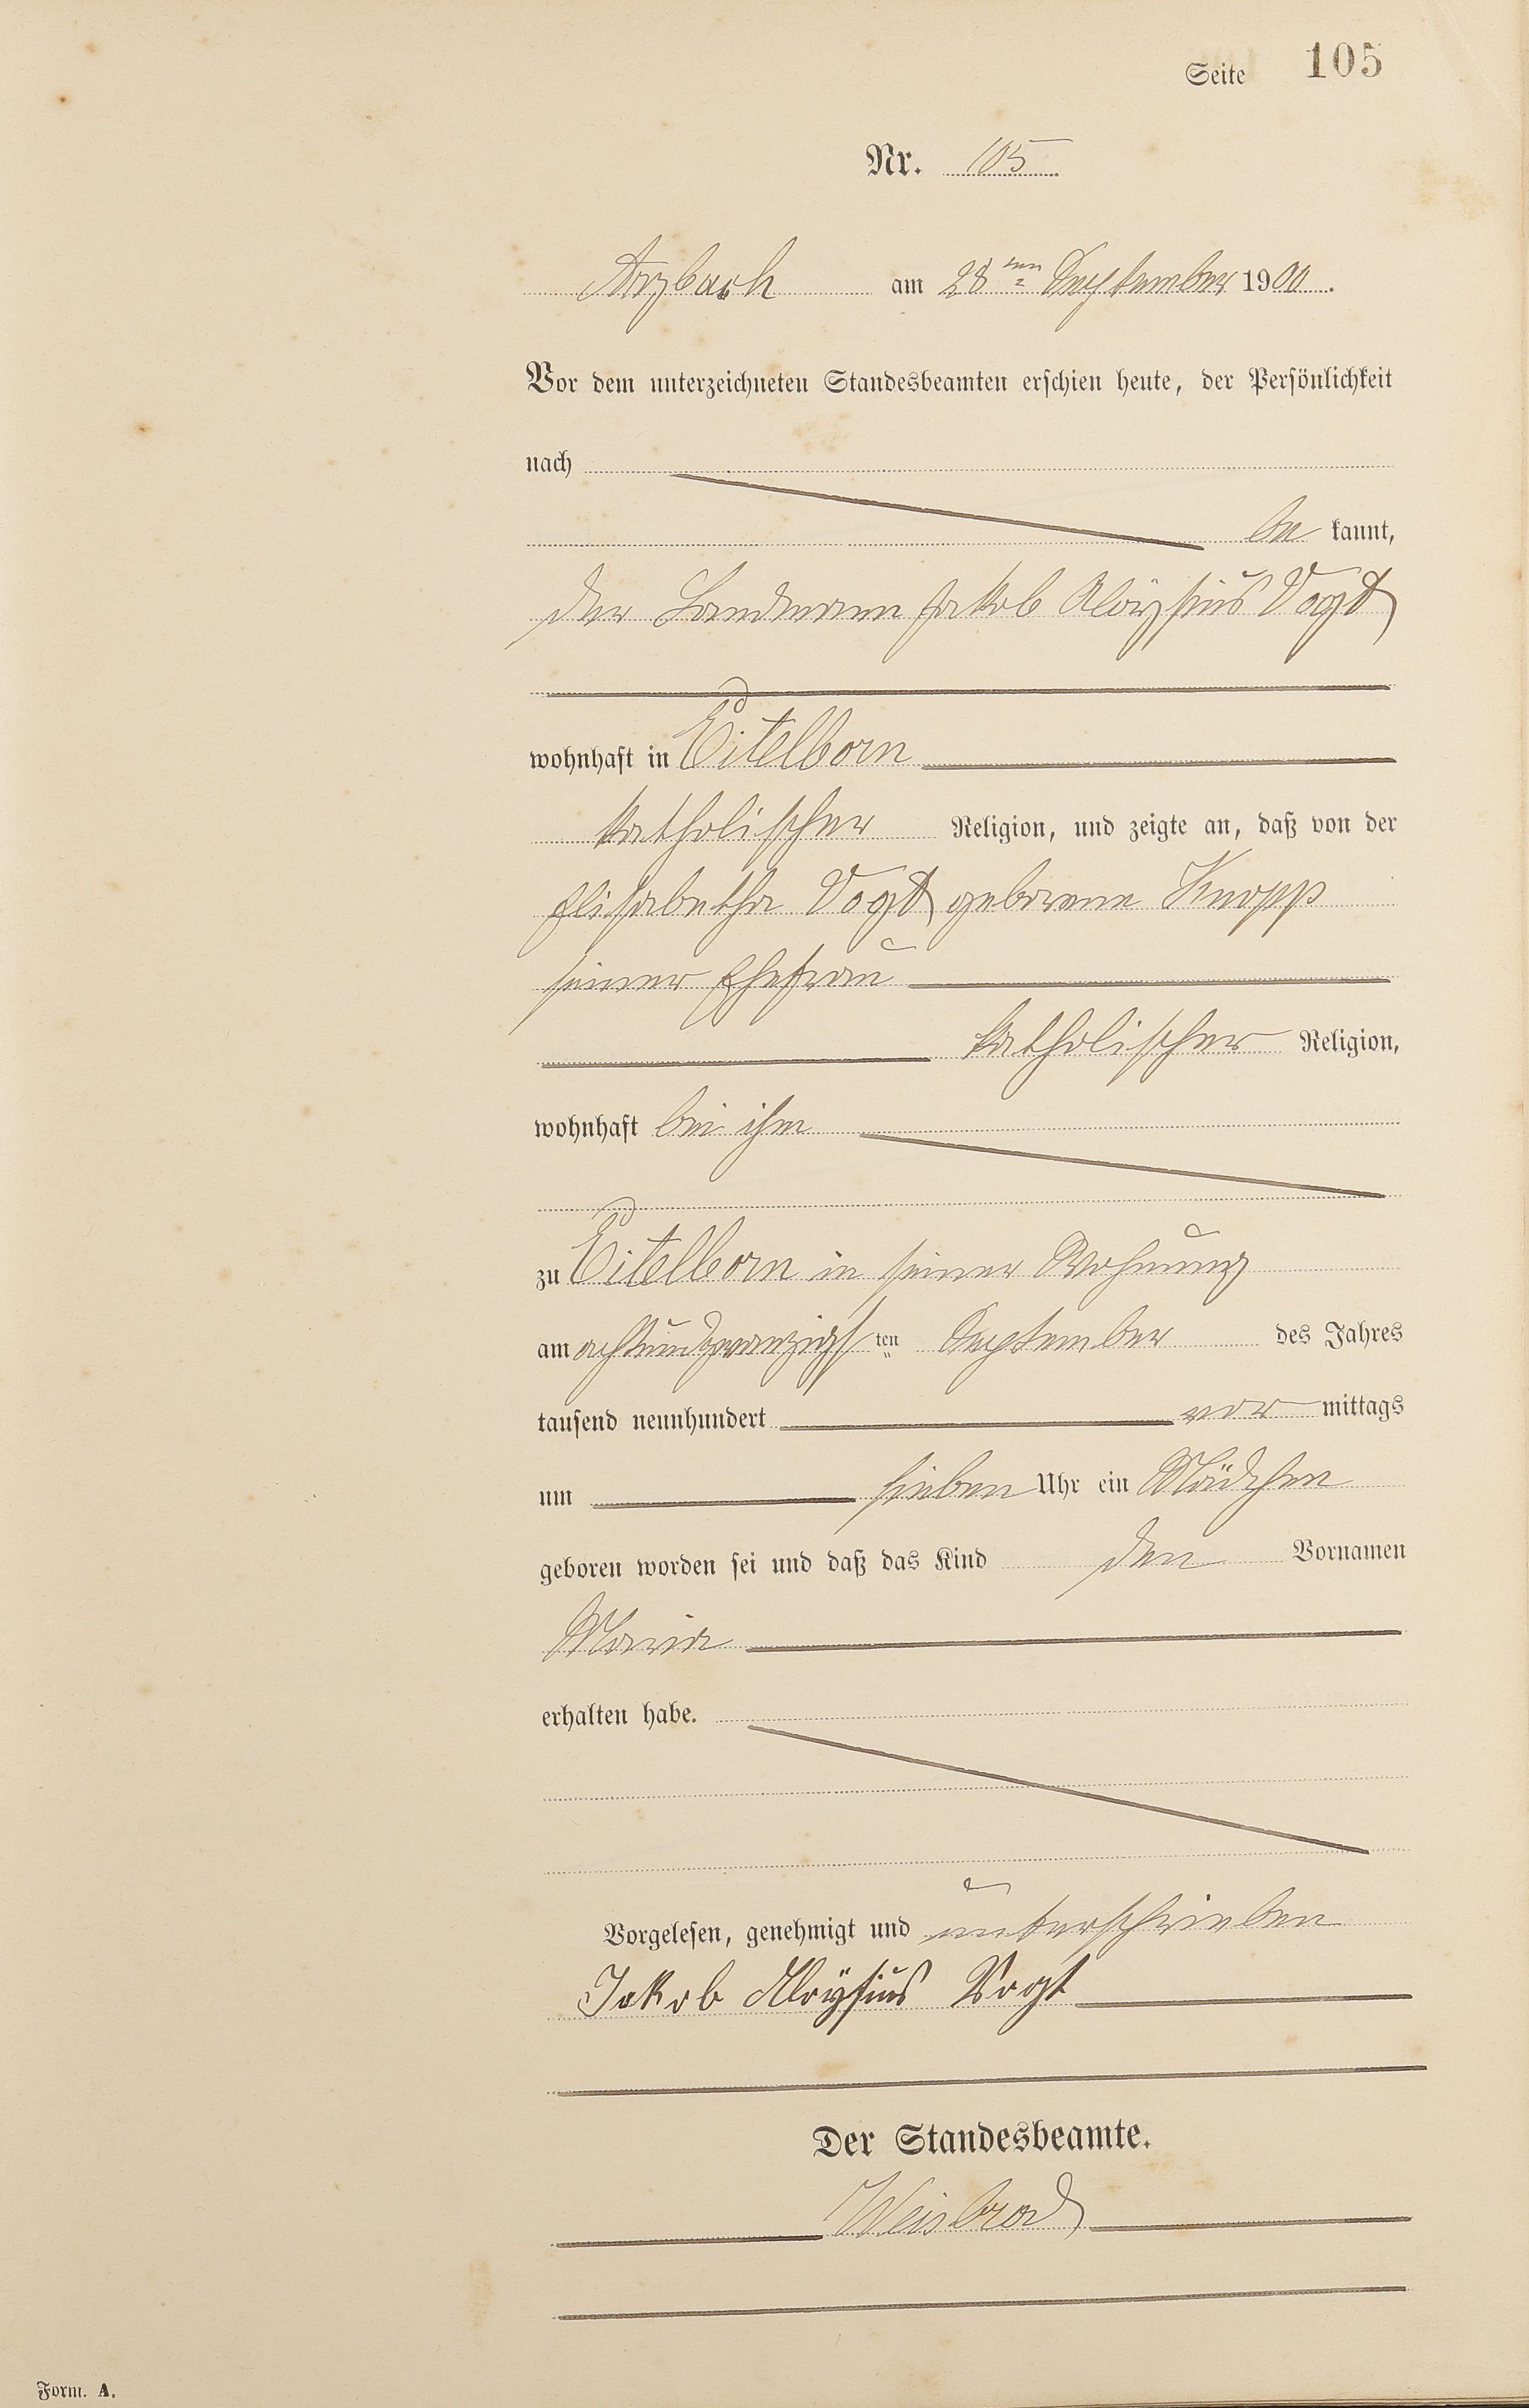 Seite 105
Nr. 105
Arzbach am 28ten September 1900.
Vor dem unterzeichneten Standesbeamten erschien heute, der Persönlichkeit
nach
be kannt,
der Landmann Jakob Aloÿsius Vogt
wohnhaft in Eitelborn
katholischer Religion, und zeigte an, daß von der
Elisabetha Vogt geborene Knopp
seiner Ehefrau
katholischer Religion,
wohnhaft bei ihm
zu Eitelborn in seiner Wohnung
am achtundzwanzigsten September des Jahres
tausend neunhundert vor mittags
um sieben Uhr ein Mädchen
geboren worden sei und daß das Kind den Vornamen
Maria
erhalten habe.
Vorgelesen, genehmigt und unterschrieben
Jakob Aloÿsius Vogt
Der Standesbeamte.
Weisbrod
Form. A.